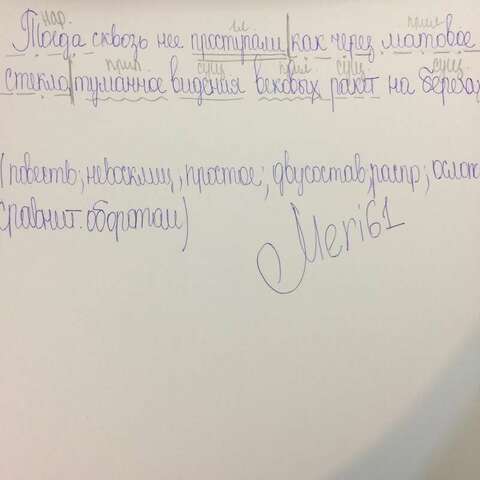 нар. гл. прил.
Тогда сквозь нее проступали как через матовое
прил. сущ. прил. сущ. сущ.
стекло туманное видения вековых ракит на берегах
(повеств; невосклиц, простое; двусостав, распр; ослож
сравнит. оборотом)
Meri61